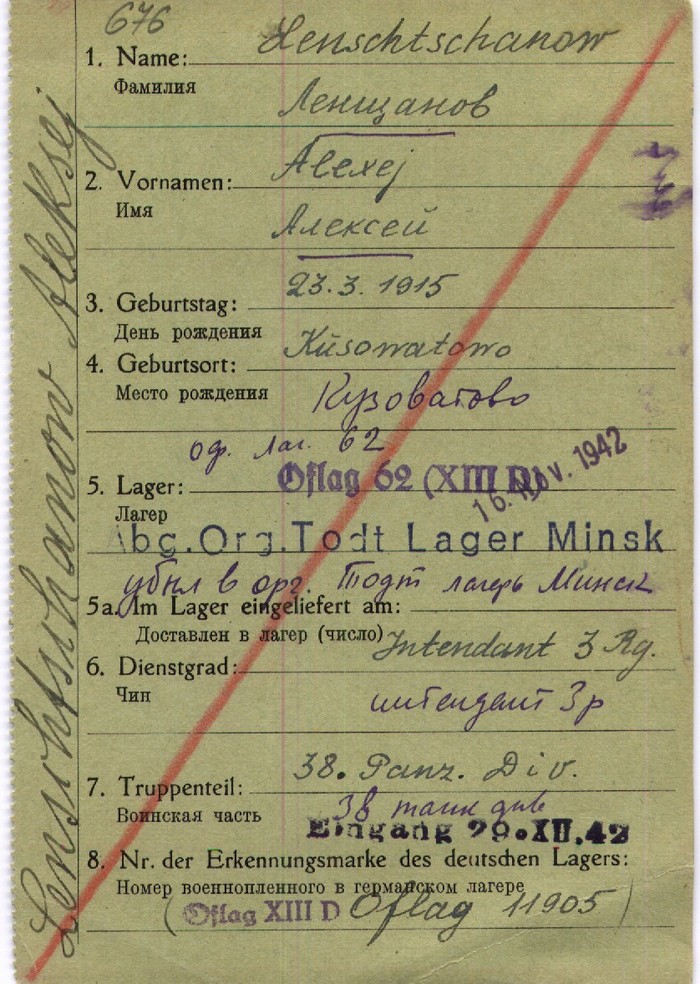 676
Lenschtschanow Aleksej
Lenschtschanow
1. Name:
Фамилия
Ленщанов
Alexej
2. Vornamen:
Имя
Алексей
23.3.1915
3. Geburtstag:
День рождения
Kusowatowo
4. Geburtsort:
Место рождения
Кузоватово
оф. лаг. 62
5. Lager: Oflag 62 (XIII D)
16. Nov. 1942
Лагер
Abg.Org.Todt Lager Minsk
убыл в орг. Тодт лагерь Минск
5a. Im Lager eingeliefert am:
Доставлен в лагер (число)
Intendant 3 Rg.
6. Dienstgrad:
Чин
интендент 3 р
38. Panz. Div.
7. Truppenteil:
38 танк див
Воинская часть
Eingang 29.XII.42
8. Nr. der Erkennungsmarke des deutschen Lagers:
Номер военнопленного в германском лагере
(Oflag XIII D Oflag 11905)